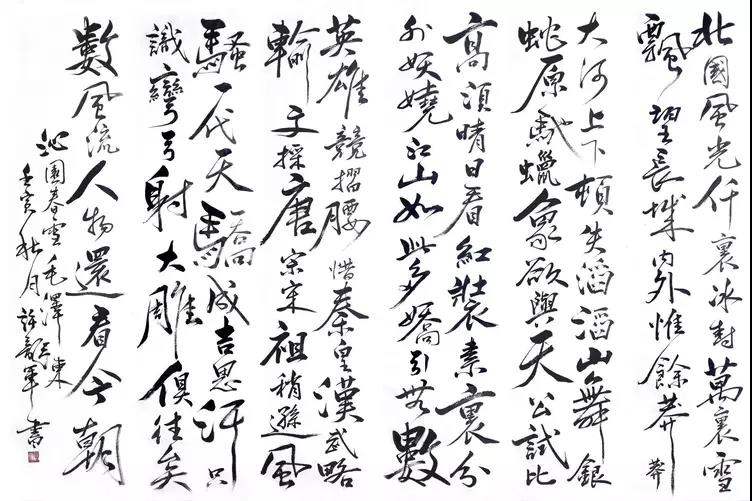 北國風光仟裏冰封萬裏雪
飄望長城内外惟餘莽莽
大河上下頓失滔滔山舞銀
蛇原馳蠟象欲與天公試比
高須晴日看紅裝素裹分
外妖嬈江山如此多嬌引無數
英雄競摺腰惜秦皇漢武略
輸文採唐宗宋祖稍遜風
騷一代天驕成吉思汗只
識彎弓射大雕俱往矣
數風流人物還看今朝
沁園春雪毛澤東
壬寅秋月許軍書